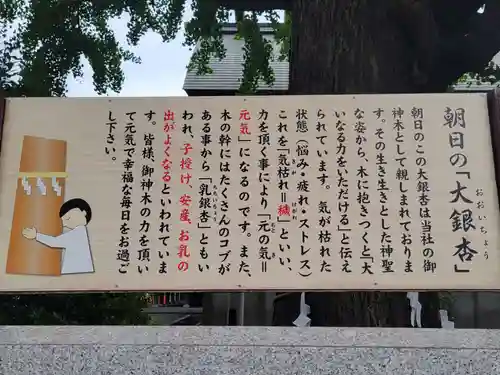 朝日の「大銀杏」
おおいちょう
朝日のこの大銀杏は当社の御
神木として親しまれておりま
す。その生き生きとした神聖
な姿から、木に抱きつくと「大
いなる力をいただける」と伝え
られています。気が枯れた
状態（悩み・疲れ・ストレス）
これを「気枯れ＝穢」といい、
けがれ
力を頂く事により「元の気＝
もと
き
元気」になるのです。また、
木の幹にはたくさんのコブが
ある事から「乳銀杏」ともい
ちちいちょう
われ、子授け、安産、お乳の
出がよくなるといわれていま
す。皆様、御神木の力を頂い
て元気で幸福な毎日をお過ご
し下さい。